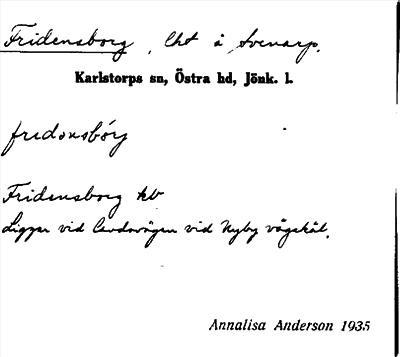 Fridensborg, lht å Svenarp.
Karlstorps sn, Östra hd, Jönk. l.
fredənsbórg
Fridensborg kb
Ligger vid landsvägen vid Nyby vägskäl.
Annalisa Anderson 1935